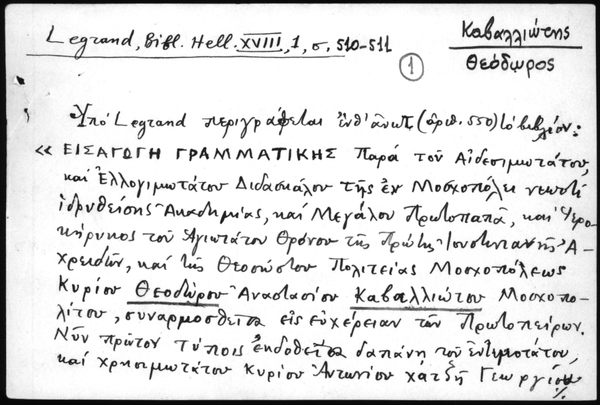 Legrand, Bibl. Hell. XVIII, 1, σ. 510-511
Καβαλλιώτης
Θεόδωρος
1
Ὑπό Legrand περιγράφεται ἐνθ' ἀνωτ. (ἀριθ. 550) τό βιβλίον:
« ΕΙΣΑΓΩΓΗ ΓΡΑΜΜΑΤΙΚΗΣ Παρά τοῦ Αἰδεσιμωτάτου,
καί Ἐλλογιμωτάτου Διδασκάλου τῆς ἐν Μοσχοπόλει νεωστί
ἱδρυθείσης Ἀκαδημίας, καί Μεγάλου Πρωτοπαπᾶ, καί Ἱερο-
κήρυκος τοῦ Ἁγιωτάτου Θρόνου τῆς Πρώτης Ἰουστινιανῆς Ἀ-
χρειδῶν, καί τῆς Θεοσώστου Πολιτείας Μοσχοπόλεως
Κυρίου Θεοδώρου Ἀναστασίου Καβαλλιώτου Μοσχοπο-
λίτου, συναρμοσθεῖσα εἰς εὐχέρειαν τῶν Πρωτοπείρων.
Νῦν πρῶτον τύποις ἐκδοθεῖσα δαπάνῃ τοῦ ἐντιμοτάτου,
καί χρησιμωτάτου Κυρίου Ἀντωνίου χατζῆ Γεωργίου